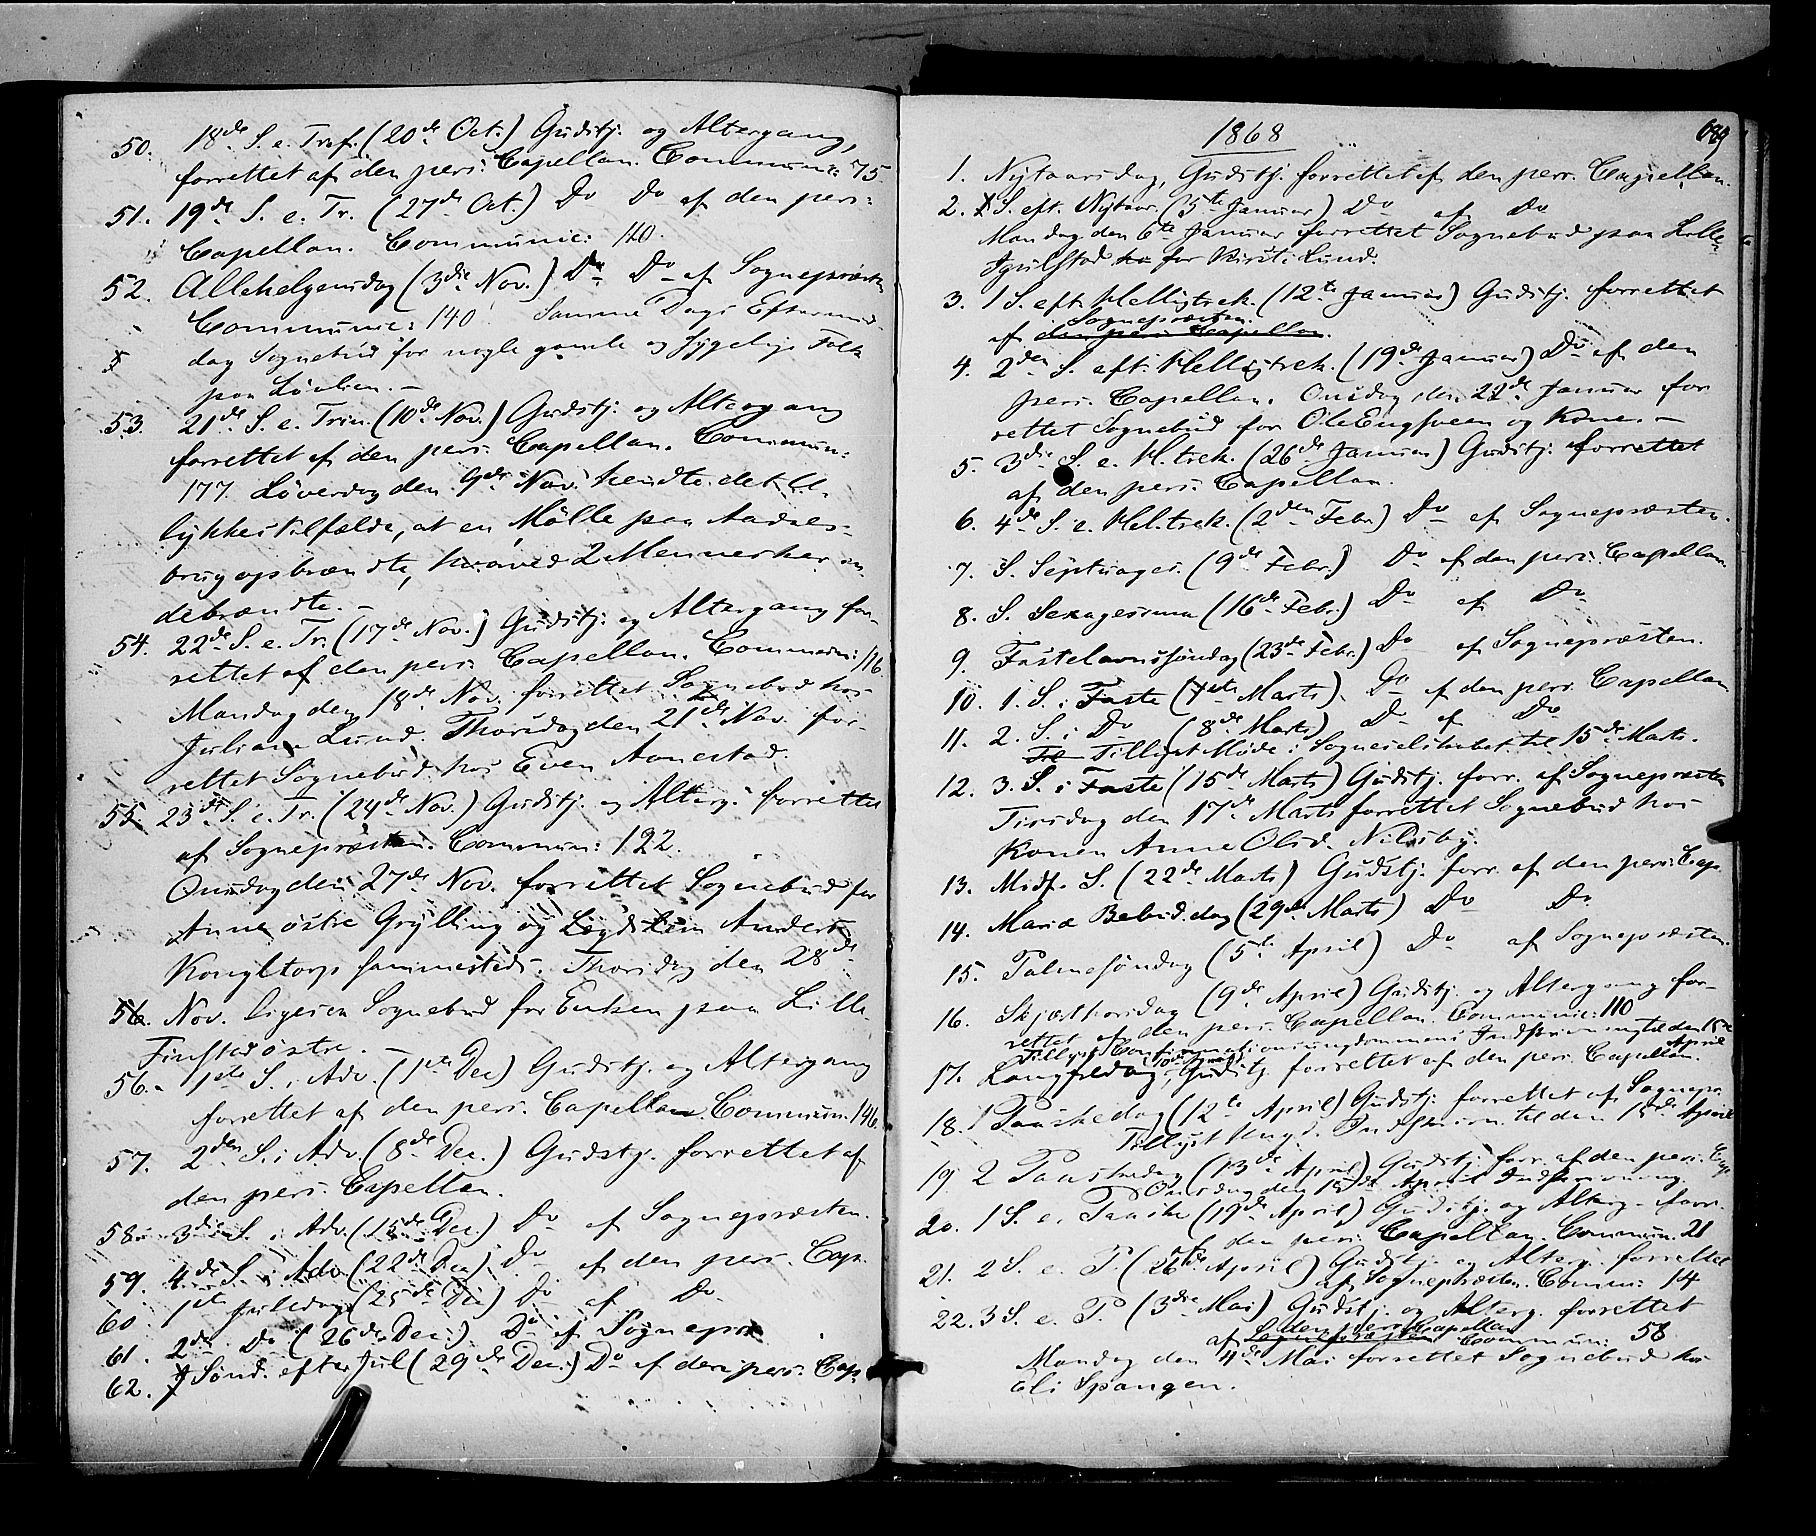 50. 18de S. e. Tref. (20de Oct.) Gudstj. og Altergang,
forrettet af den pers. Capellan. Communic: 75.
51. 19de S. e. Tr. (27de Oct.) Do Do af den pers:
Capellan. Communic: 110.
52. Allehelgensdag (3die Nov.) Do Do af Sognepræsten
Communic: 140. Samme Dags Eftermid-
dag Sognebud for nogle gamle og sygelige Folk
paa Løvlien. -
53. 21de S. e. Trin. (10de Nov.) Gudstj. og Altergang
forrettet af den pers. Capellan. Commun:
177. Løverdag den 9de Nov. hendte det U-
lykkestilfælde, at en Mølle paa Aadals-
brug opbrændte, hvorved 2 Mennesker in-
debrændte. -
54. 22de S. e. Tr. (17de Nov.) Gudstj. og Altergang for-
rettet af den pers. Capellan. Commun: 116
Mandag den 18de Nov. forrettet Sognebud hos
Juliane Lund. Thorsdag den 21de Nov. for-
rettet Sognebud hos Even Aanestad.
55. 23de S. e. Tr. (24de Nov.) Gudstj. og Alterg. forrettet
af Sognepræsten. Commun: 122.
Onsdag den 27de Nov. forrettet Sognebud for
Anne østre Grylling og Anders
Kongltorp sammesteds. Thorsdag den 28de
56. Nov. ligesaa Sognebud for Enken paa Lille
Finstad østre. -
56. 1ste S. i Adv. (1ste Dec) Gudstj. og Altergang
forrettet af den pers. Capellan Commun. 146.
57. 2den S. i Adv. (8de Dec.) Gudstj. forrettet af
den pers. Capellan.
58. 3die S. i Adv. (15de Dec.) Do af Sognepræsten.
59. 4de S. i Adv. (22de Dec) Do af den pers. Cap.
60. 1ste Juledag (25de Dec) Do af Do
61. 2den Do (26de Dec.) Do af Sognepræ
62. Sønd. efter Jul (29de Dec.) Do af den pers: Cap.
1868
1. Nytaarsdag, Gudstj. forrettet af den pers. Capellan.
2. S. eft. Nytaar. (5te Januar) Do af Do
Mandag den 6te Januar forrettet Sognebud paa Lille
for Kirsti Lund.
3. 1 S. eft. Helligtrek. (12te Januar) Gudstj. forrettet
Sognepræsten.
af den pers. Capellan.
4. 2den S. eft. Helligtrek. (19de Januar) Do af den
pers. Capellan. Onsdag den 22de Januar for
rettet Sognebud for Ole Engsveen og Kone. -
5. 3die S. e. H. trek. (26de Januar) Gudstj. forrettet
af den pers. Capellan.
6. 4de S. e. Hel. trek. (2den Febr.) Do af Sognepræsten.
7. S. Septuages. (9de Febr.) Do af den pers. Capellan
8. S. Sexagesima (16de Febr.) Do af Do
9. Fastelavnssøndag (23de Febr.) Do af Sognepræsten.
10. 1. S. i Faste (1ste Marts). Do af den pers. Capellan
11. 2. S. i Do (8de Marts) Do af Do
Tillyst Møde i Sogneselskabet til 15de Marts.
12. 3. S. i Faste (15de Marts) Gudstj. forr. af Sognepræsten
Tirsdag den 17de Marts forrettet Sognebud hos
Konen Anne Olsd. Nilsby.
13. Midf. S. (22de Marts) Gudstj. forr. af den pers. Cap.
14. Mariæ Bebud. dag (29de Marts) Do Do
15. Palmesøndag (5te April) Do af Sognepræsten.
16. Skjærthorsdag (9de April) Gudstj. og Altergang for-
rettet af den pers. Capellan. Communic: 110
Tillyst Confirmationsungdommens Indskrivning til den 15de
April
17. Langfredag (10de April), Gudstj. forrettet af den pers. Capellan.
18. 1 Paaskedag (12te April) Gudstj. forrettet af Sognepr.
Tillyst Ungd. Indskrivn. til den 15de April
19. 2 Paaskedag (13de April) Gudstj. forr. af den pers. Cap
Onsdag den 15de April Indskrivning.
20. 1 S. e. Paaske (19de April) Gudstj. og Alterg. forr.
af den pers. Capellan. Commun. 21
21. 2 S. e. P. (26de April) Gudstj. og Alterg. forrettet
af Sognepræsten. Commun: 14
22. 3 S. e. P. (3die Mai) Gudstj. og Alterg. forrettet
den pers. Capellan
af Sognepræsten Commun: 58
Mandag den 4de Mai forrettet Sognebud hos
Eli Spangen.